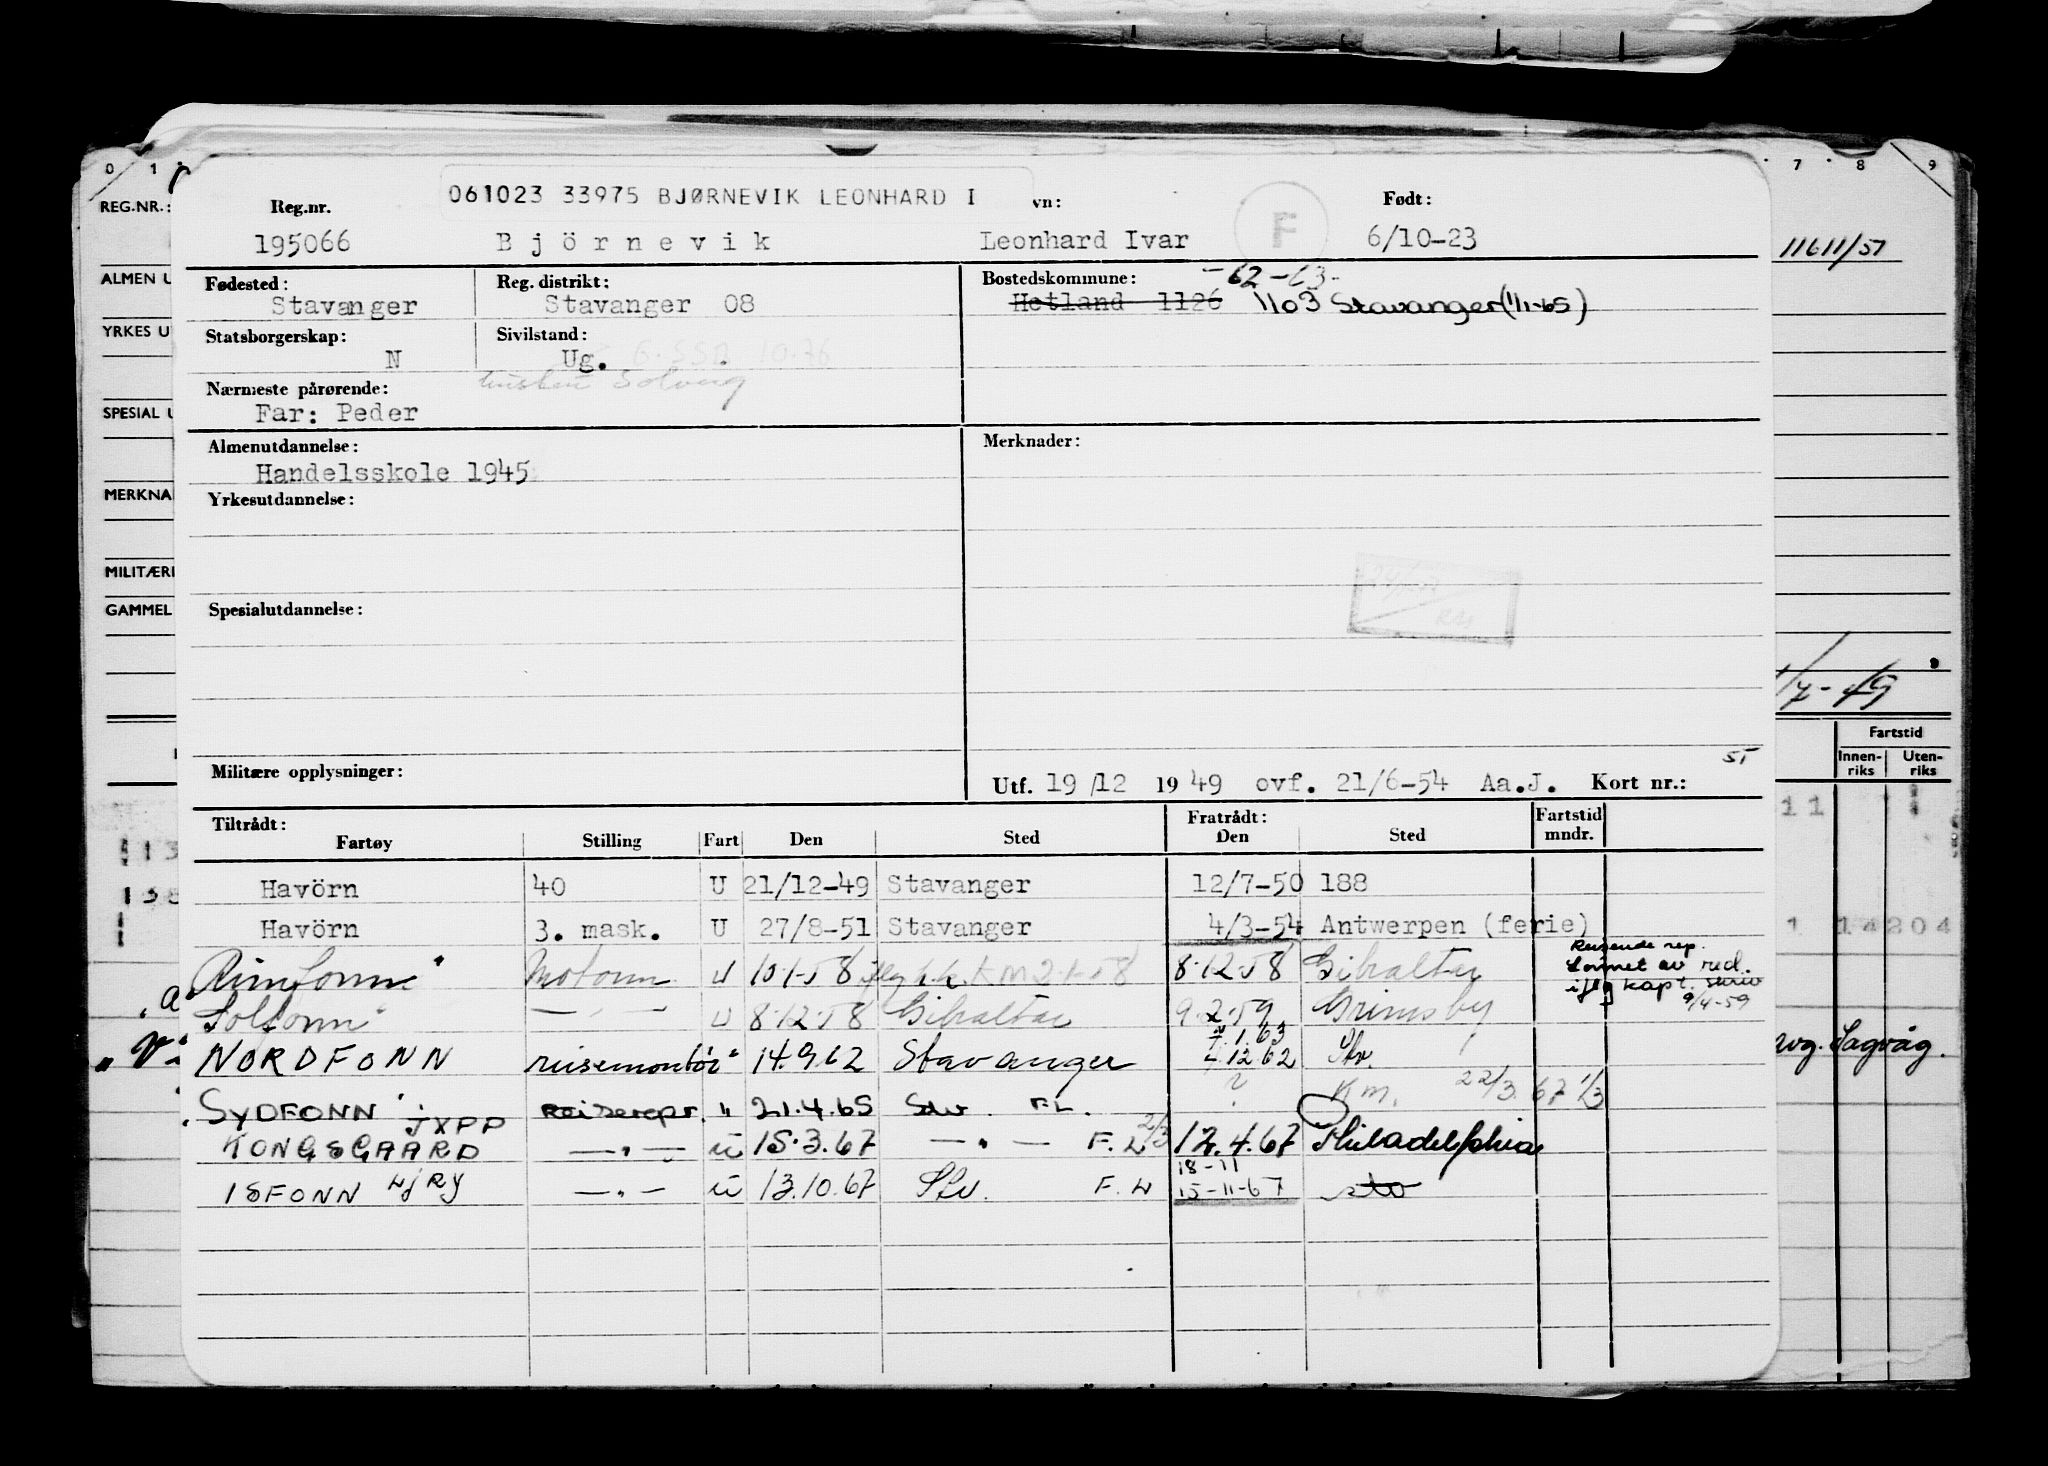 0 1 7 8 9
REG.NR.:
ALMEN U
YRKES U
SPESIAL U
MERKNA
MILITÆRE
GAMMEL
11611/51
Fartstid
Innen-riks Uten-riks
14204
Sagvåg.
061023 33975 BJØRNEVIK LEONHARD I
Reg.nr. vn: Født:
195066 Björnevik Leonhard Ivar F 6/10-23
Fødested: Reg. distrikt: Bostedskommune: -62-63-
Stavanger Stavanger 08 Hetland 1126 1103 Stavanger (1/1-65)
Statsborgerskap: Sivilstand:
N Ug.
Nærmeste pårørende: Solveig
Far: Peder
Almenutdannelse: Merknader:
Handelsskole 1945
Yrkesutdannelse:
Spesialutdannelse:
Militære opplysninger:
Utf. 19/12 1949 ovf. 21/6-54 Aa.J. Kort nr.:
Tiltrådt: Fratrådt: Fartstid
Fartøy Stilling Fart Den Sted Den Sted mndr.
Havörn 40 U 21/12-49 Stavanger 12/7-50 188
Havörn 3. mask. U 27/8-51 Stavanger 4/3-54 Antwerpen (ferie)
Rimfonn" Motorm U 10.1.58 K M 2.1.58 8.12.58 Gibraltar
Reisende rep.
lønnet av red.
iflg kapt. skriv
9/4-59
Solfonn" —"— U 8.12.58 Gibraltar 9.2.59 Grimsby
NORDFONN reisemontør " 14.9.62 Stavanger 4.12.62 Stv.
7.1.63
SYDFONN Reiserepr. " 21.4.65 Stv. FL. ? Km. 22/3.67 1/3
JXPP
KONGSGAARD —"— u 15.3.67 —"— F.L 2/3 12.4.67 Philadelphia
ISFONN LJRY —"— u 13.10.67 Stv. F.L 15-11-67 sto
18-11